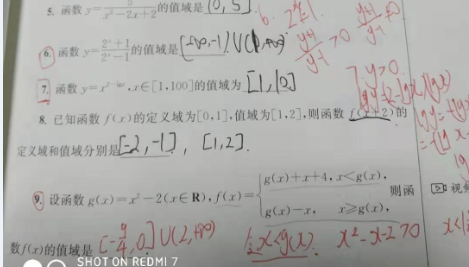 5. 函数 y=5/(x²-2x+2) 的值域是 (0, 5].
6. 函数 y=(2ˣ+1)/(2ˣ-1) 的值域是 (-∞,-1)∪(1,+∞)
(y+1)/(y-1)>0
7. 函数 ,x∈[1,100]的值域为 [1,10]
y>0
8. 已知函数 f(x)的定义域为[0,1],值域为[1,2],则函数 f(x+2)的
定义域和值域分别是 [-2,-1], [1,2].
9. 设函数 g(x)=x²-2(x∈R),f(x)={g(x)+x+4, x<g(x),
g(x)-x, x≥g(x), 则函
数f(x)的值域是 [-9/4,0]∪(2,+∞) x<g(x) x²-x-2>0
SHOT ON REDMI 7